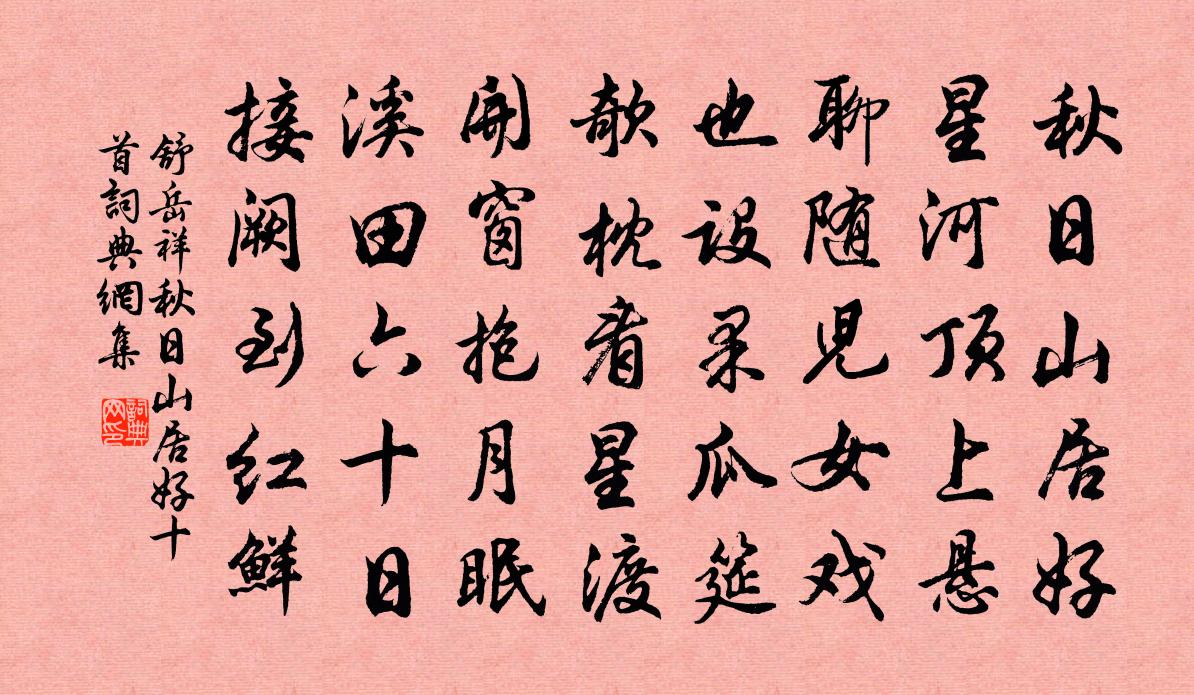 秋日山居好
星河顶上悬
聊随児女戏
也设果瓜筵
欹枕看星渡
開窗抱月眠
溪田六十日
接阙到红鮮
舒岳祥秋日山居好十
首詞典網集
詞典
网印